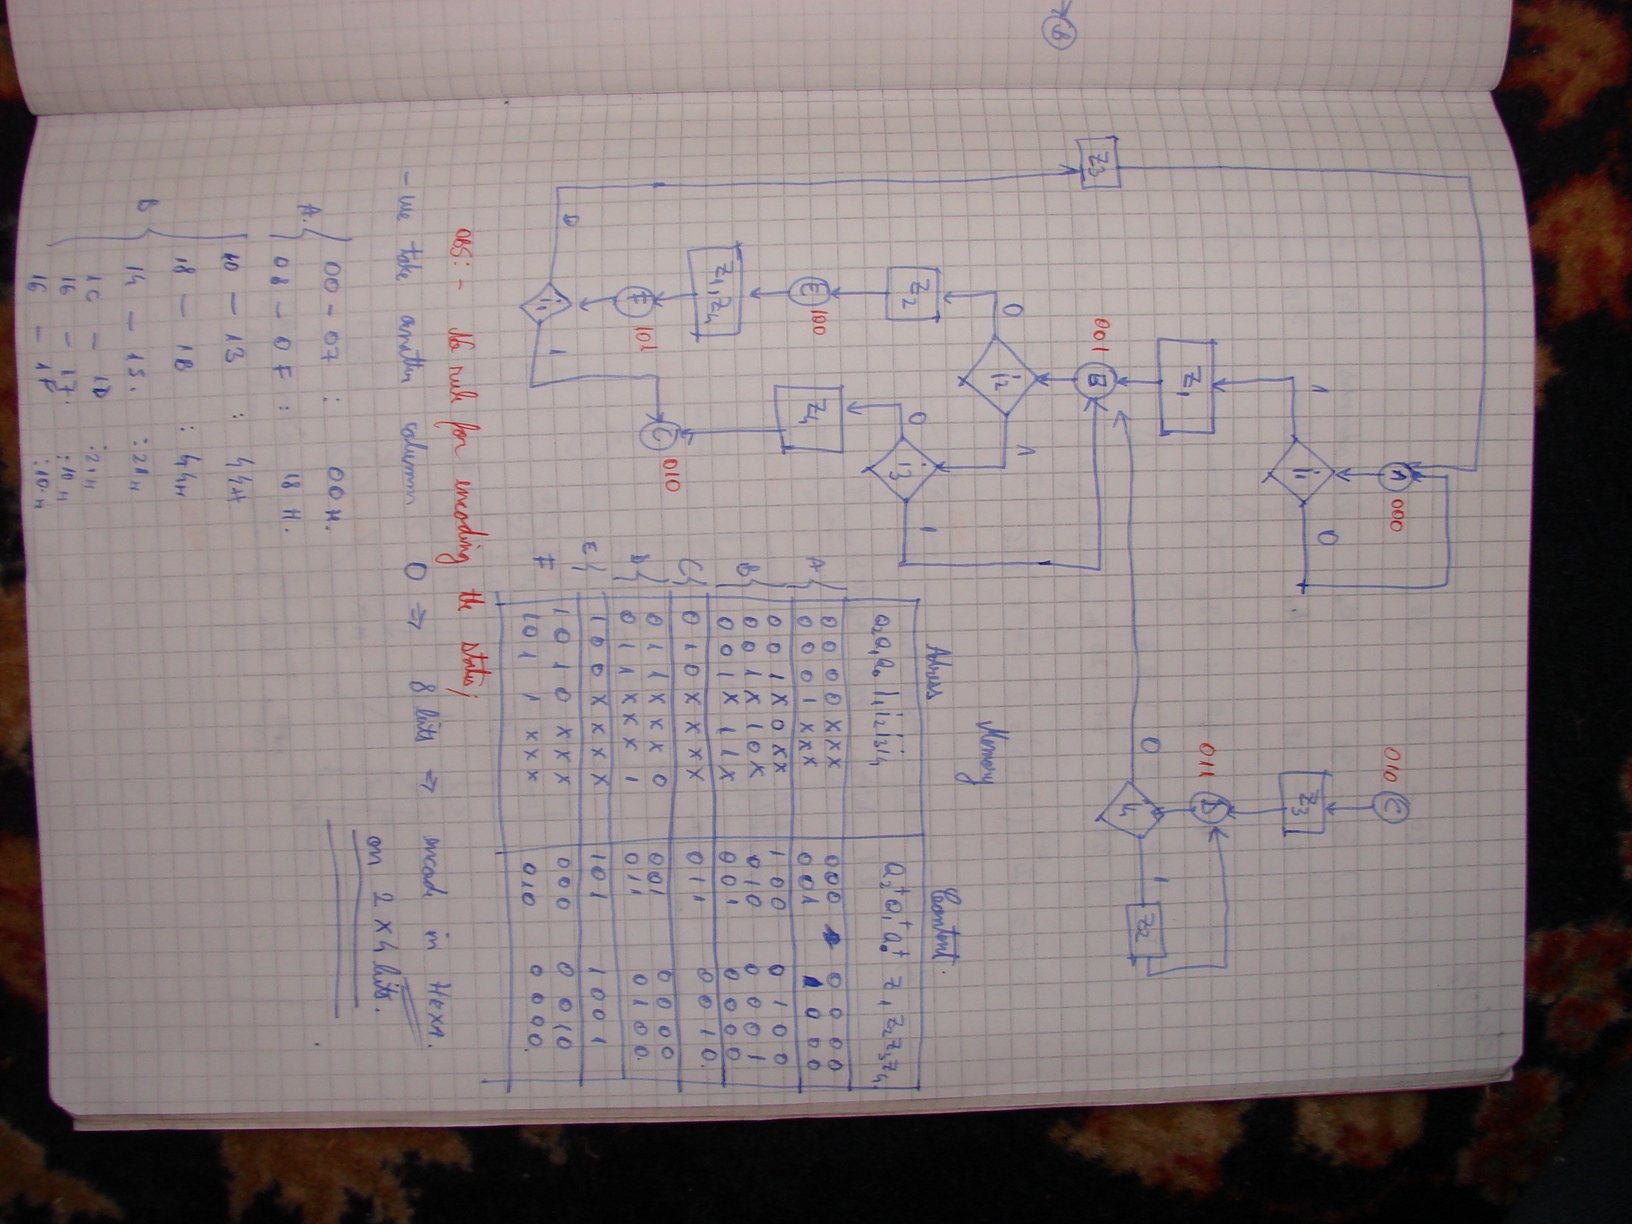 B
A 000
i1
0
1
Z1
001 B
i2
0
1
i3
0
1
Z2
Z4
E 100
Z1, Z4
C 010
F 101
i1
0
1
Z3
C 010
Z3
D 011
i4
0
1
Z2
Memory
Adress Content.
a2a1a0 i1i2i3i4 a2+a1+a0+ Z1Z2Z3Z4
A { 000 0xxx 000 0000
000 1xxx 001 000
B { 001 x0xx 100 0100
001 x10x 010 0001
001 x11x 001 0000
C { 010 xxxx 011 0010.
D { 011 xxx0 001 0000
011 xxx1 011 0100.
E { 100 xxxx 101 1001
F 101 0xxx 000 0010
101 1xxx 010 0000.
OBS: - No rule for encoding the states;
- we take column 0 => 8 bits => in Hexa.
on 2 x 4 bits.
A. { 00 - 07 : 00 H.
08 - 0F : 18 H.
B { 10 - 13 : 44H
18 - 1B : 44H
14 - 15. : 21H
1C - 1D : 21H
16 - 17. : 10H
16 - 1F : 10.H